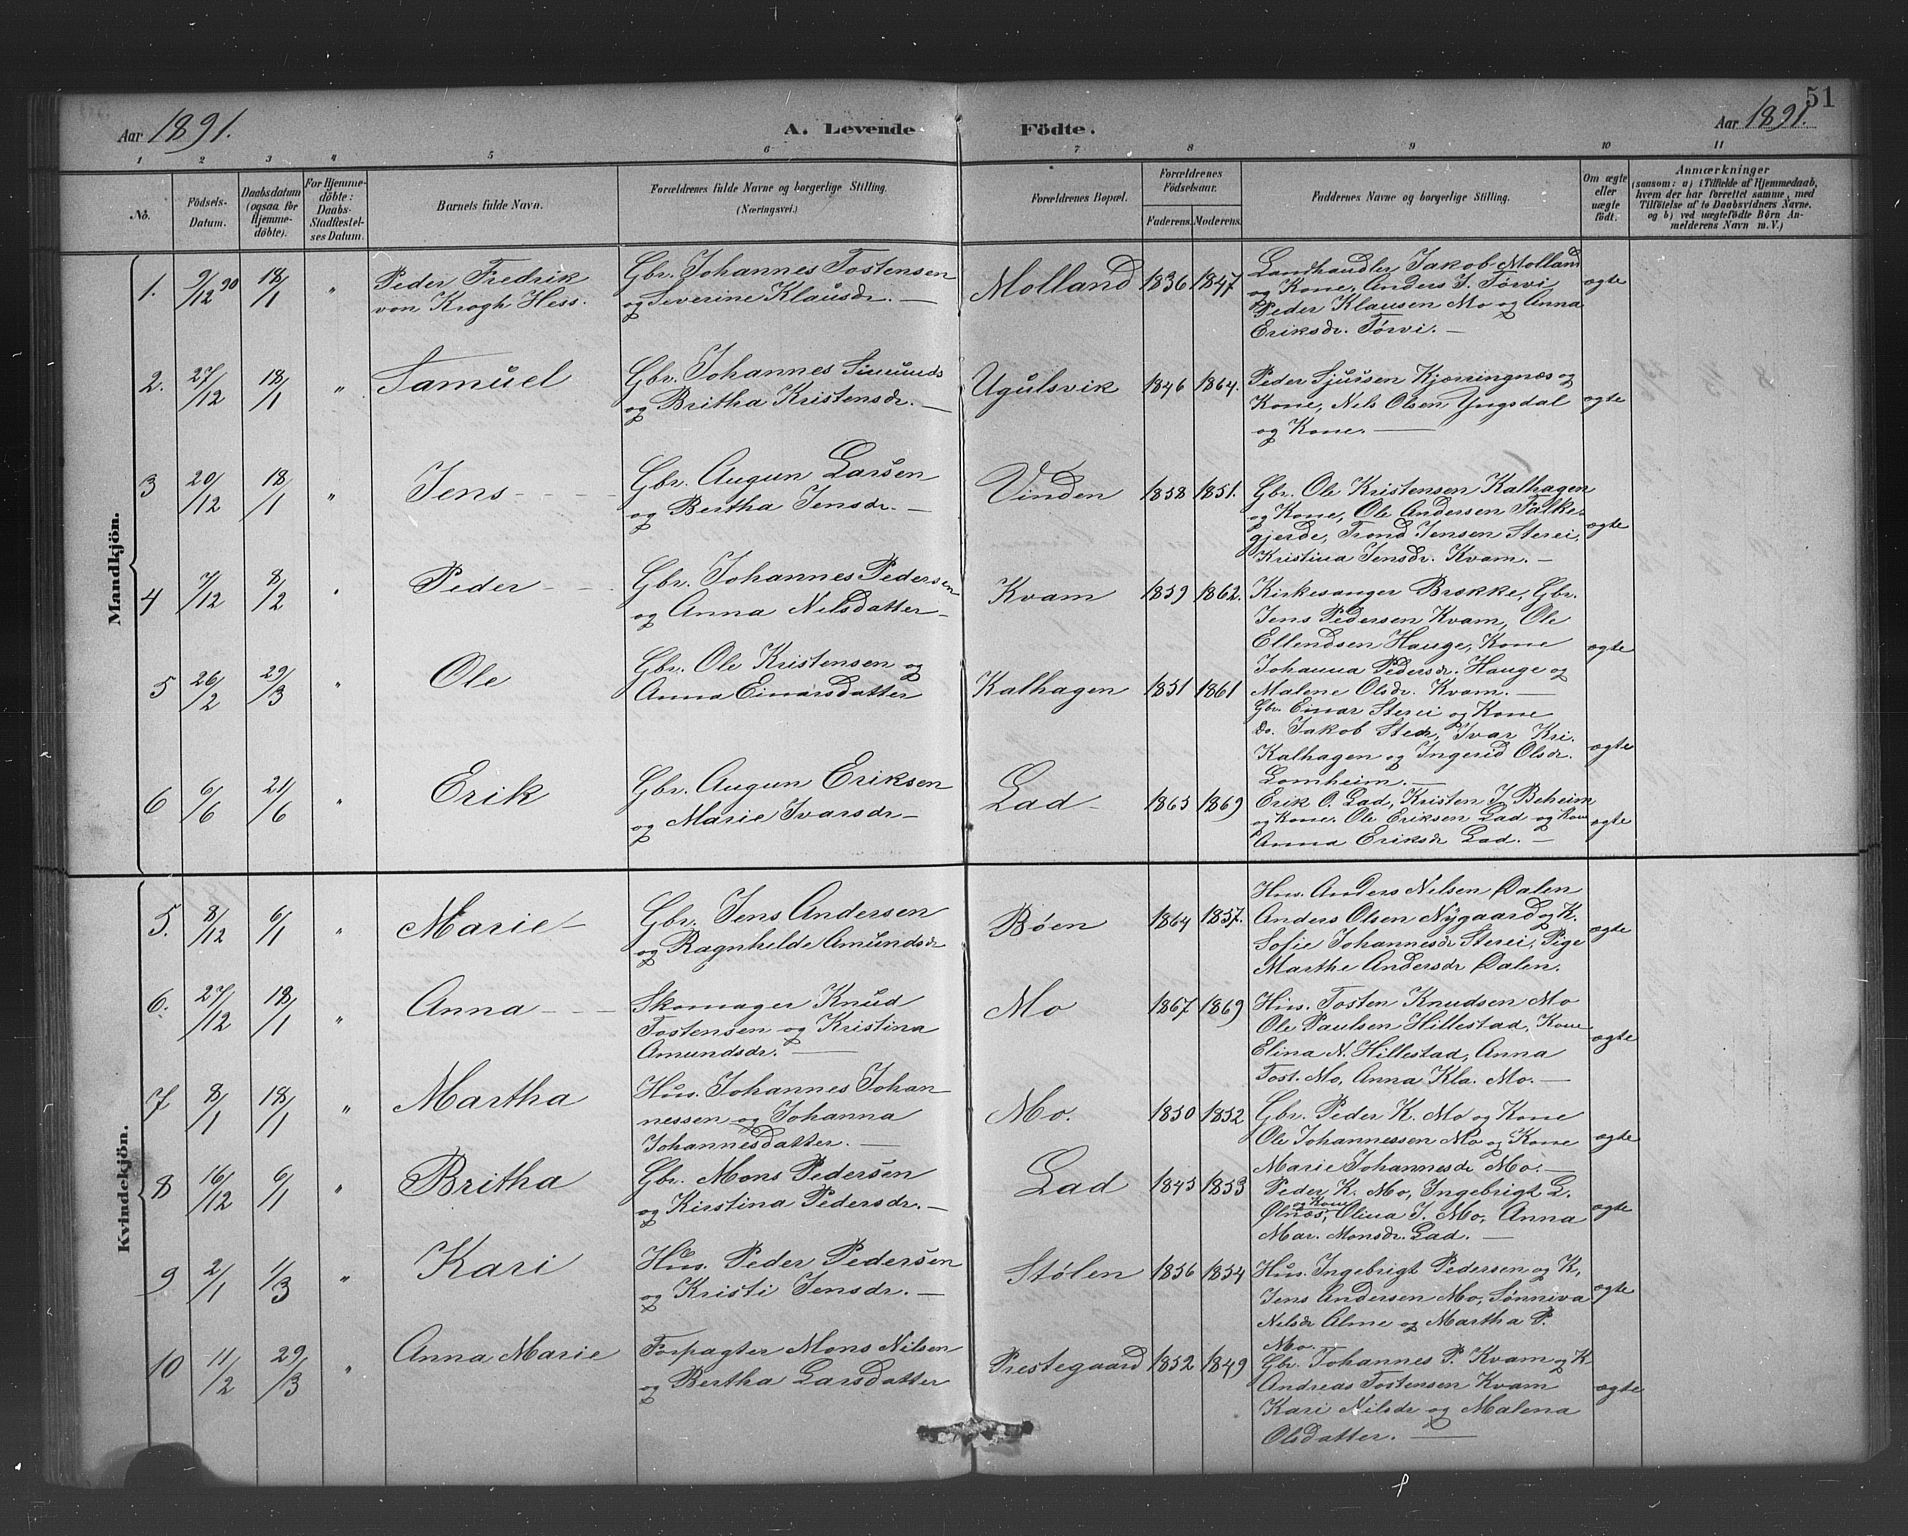 51
Aar 1891. A. Levende Födte. Aar 1891.
1 2 3 4 5 6 7 8 9 10 11
No.
Födsels-
Datum.
Daabsdatum
(ogsaa for
Hjemme-
döbte).
For Hjemme-
döbte:
Daabs-
Stadfæstel-
ses Datum.
Barnets fulde Navn.
Forældrenes fulde Navne og borgerlige Stilling.
(Næringsvei.)
Forældrenes Bopæl.
Forældrenes
Födselsaar.
Faderens. Moderens.
Faddernes Navne og borgerlige Stilling.
Om ægte
eller
uægte
födt.
Anmærkninger
(saasom: a) i Tilfælde af Hjemmedaab,
hvem der har forrettet samme, med
Tilföielse af to Daabsvidners Navne,
og b) ved uægtefödte Börn An-
melderens Navn m. V.)
Mandkjön.
1. 9/12 90 18/1 " Peder Fredrik
von Krogh Hess.
Gbr. Johannes Tostensen
og Severine Klausdr. —
Molland 1836 1847
Landhandler Jakob Molland
og Kone, Anders J. Tørvi
Peder Klausen Mo og Anna
Eriksdr. Tørvi. —
ægte
2. 27/12 18/1 " Samuel
Gbr. Johannes Simunds
og Britha Kristensdr. —
Ugulsvik 1846 1864.
Peder Sjursen Kjørringnæs og
Kone, Nils Olsen Yngsdal
og Kone. —
ægte
3 20/12 18/1 " Jens
Gbr. Augun Larsen
og Bertha Jensdr. —
Vinden 1858 1851.
Gbr. Ole Kristensen Kalhagen
og Kone, Ole Andersen Falke-
gjerde, Trond Jensen Sterei,
Kristina Jensdr. Kvam. —
ægte
4 7/12 8/2 " Peder
Gbr. Johannes Pedersen
og Anna Nilsdatter —
Kvam 1859 1862.
Kirkesanger Brække, Gbr.
Jens Pedersen Kvam, Ole
Ellendsen Hauge, Kone
Johanna Pedersdr. Hauge og
Malene Olsdr. Kvam. —
ægte
5 26/2 29/3 " Ole
Gbr. Ole Kristensen og
Anna Einarsdatter
Kalhagen 1851 1861
Gbr. Einar Sterei og Kone
Do. Jakob Ster, Ivar Kri.
Kalhagen og Ingerid Olsdr.
Lomheim. —
ægte
6 6/6 21/6 " Erik
Gbr. Augun Eriksen
og Marie Ivarsdr —
Lad 1865 1869
Erik O. Lad, Kristen J. Beheim
og Kone. Ole Eriksen Lad og Kone
Anna Eriksdr Lad. —
ægte
Kvindekjön.
5. 8/12 6/1 " Marie
Gbr. Jens Andersen
og Ragnhilde Amundsdr
Bøen 1864 1857.
Hus. Anders Nilsen Dalen
Anders Olsen Nygaard og K.
Sofie Johannesdr Sterei, Pige
Marthe Andersdr Dalen.
ægte
6. 27/12 18/1 " Anna
Skomager Knud
Tostensen og Kristina
Amundsdr. —
Mo 1867 1869
Hus. Tosten Knudsen Mo
Ole Paulsen Hillestad, Kone
Elina N. Hillestad, Anna
Tost. Mo, Anna Kla. Mo. —
ægte
7 8/1 18/1 " Martha
Hus. Johannes Johan
nessen og Johanna
Johannesdatter. —
Mo. 1850 1852
Gbr. Peder K. Mo og Kone
Ole Johannessen Mo og Kone
Marie Johannesdr Mo. —
ægte
8 16/12 6/1 " Britha
Gbr. Mons Pedersen
og Kirstina Pedersdr. —
Lad 1845 1853
Peder K. Mo, Ingebrigt L.
og Kone
Ølnæs, Olina J. Mo, Anna
Mar. Monsdr. Lad. —
ægte
9 2/1 1/3 " Kari
Hus. Peder Pedersen
og Kristi Jensdr. —
Stølen 1856 1854
Hus. Ingebrigt Pedersen og K,
Jens Andersen Mo, Sønniva
Nilsdr Alme og Martha P.
Mo.
ægte
10 11/2 29/3 " Anna Marie
Forpagter Mons Nilsen
og Bertha Larsdatter
Prestegaard 1852 1849
Gbr. Johannes P. Kvam og K
Andreas Tostensen Kvam
Kari Nilsdr og Malena
Olsdatter. —
ægte